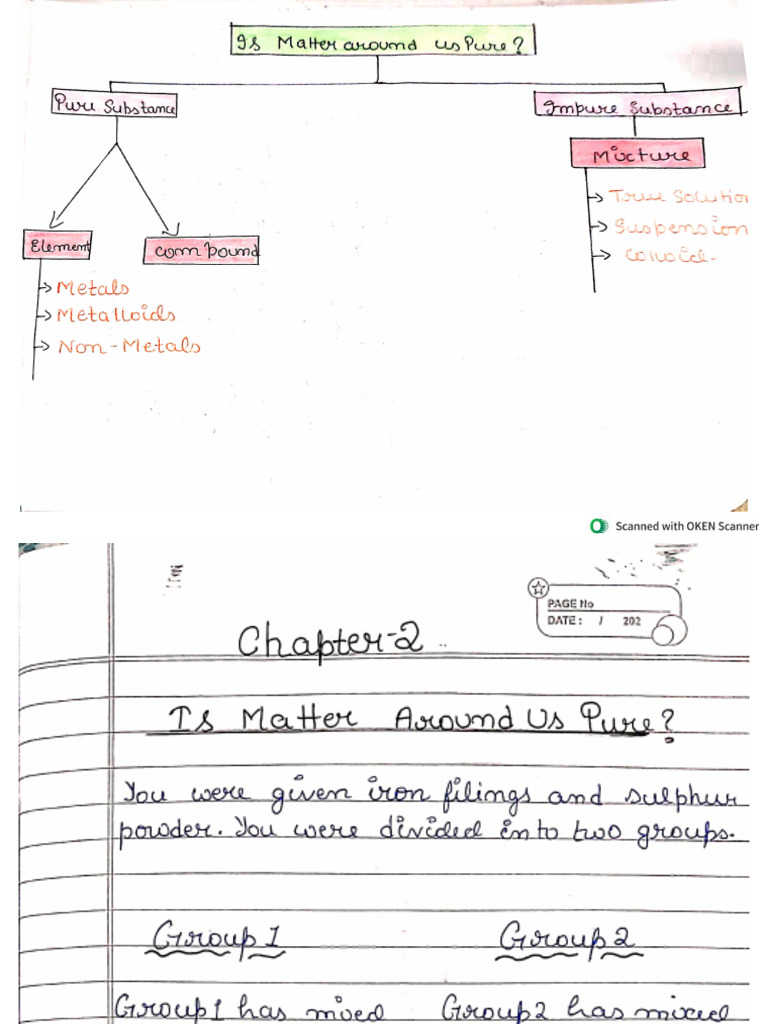 Is Matter around us Pure?
Pure Substance
Impure Substance
Mixture
True Solution
Suspension
Colloid.
Element
Compound
Metals
Metalloids
Non-Metals
Scanned with OKEN Scanner
PAGE No
DATE: / 202
Chapter-2
Is Matter Around Us Pure?
You were given iron filings and sulphur
powder. You were divided into two groups.
Group 1 Group 2
Group 1 has mixed Group 2 has mixed